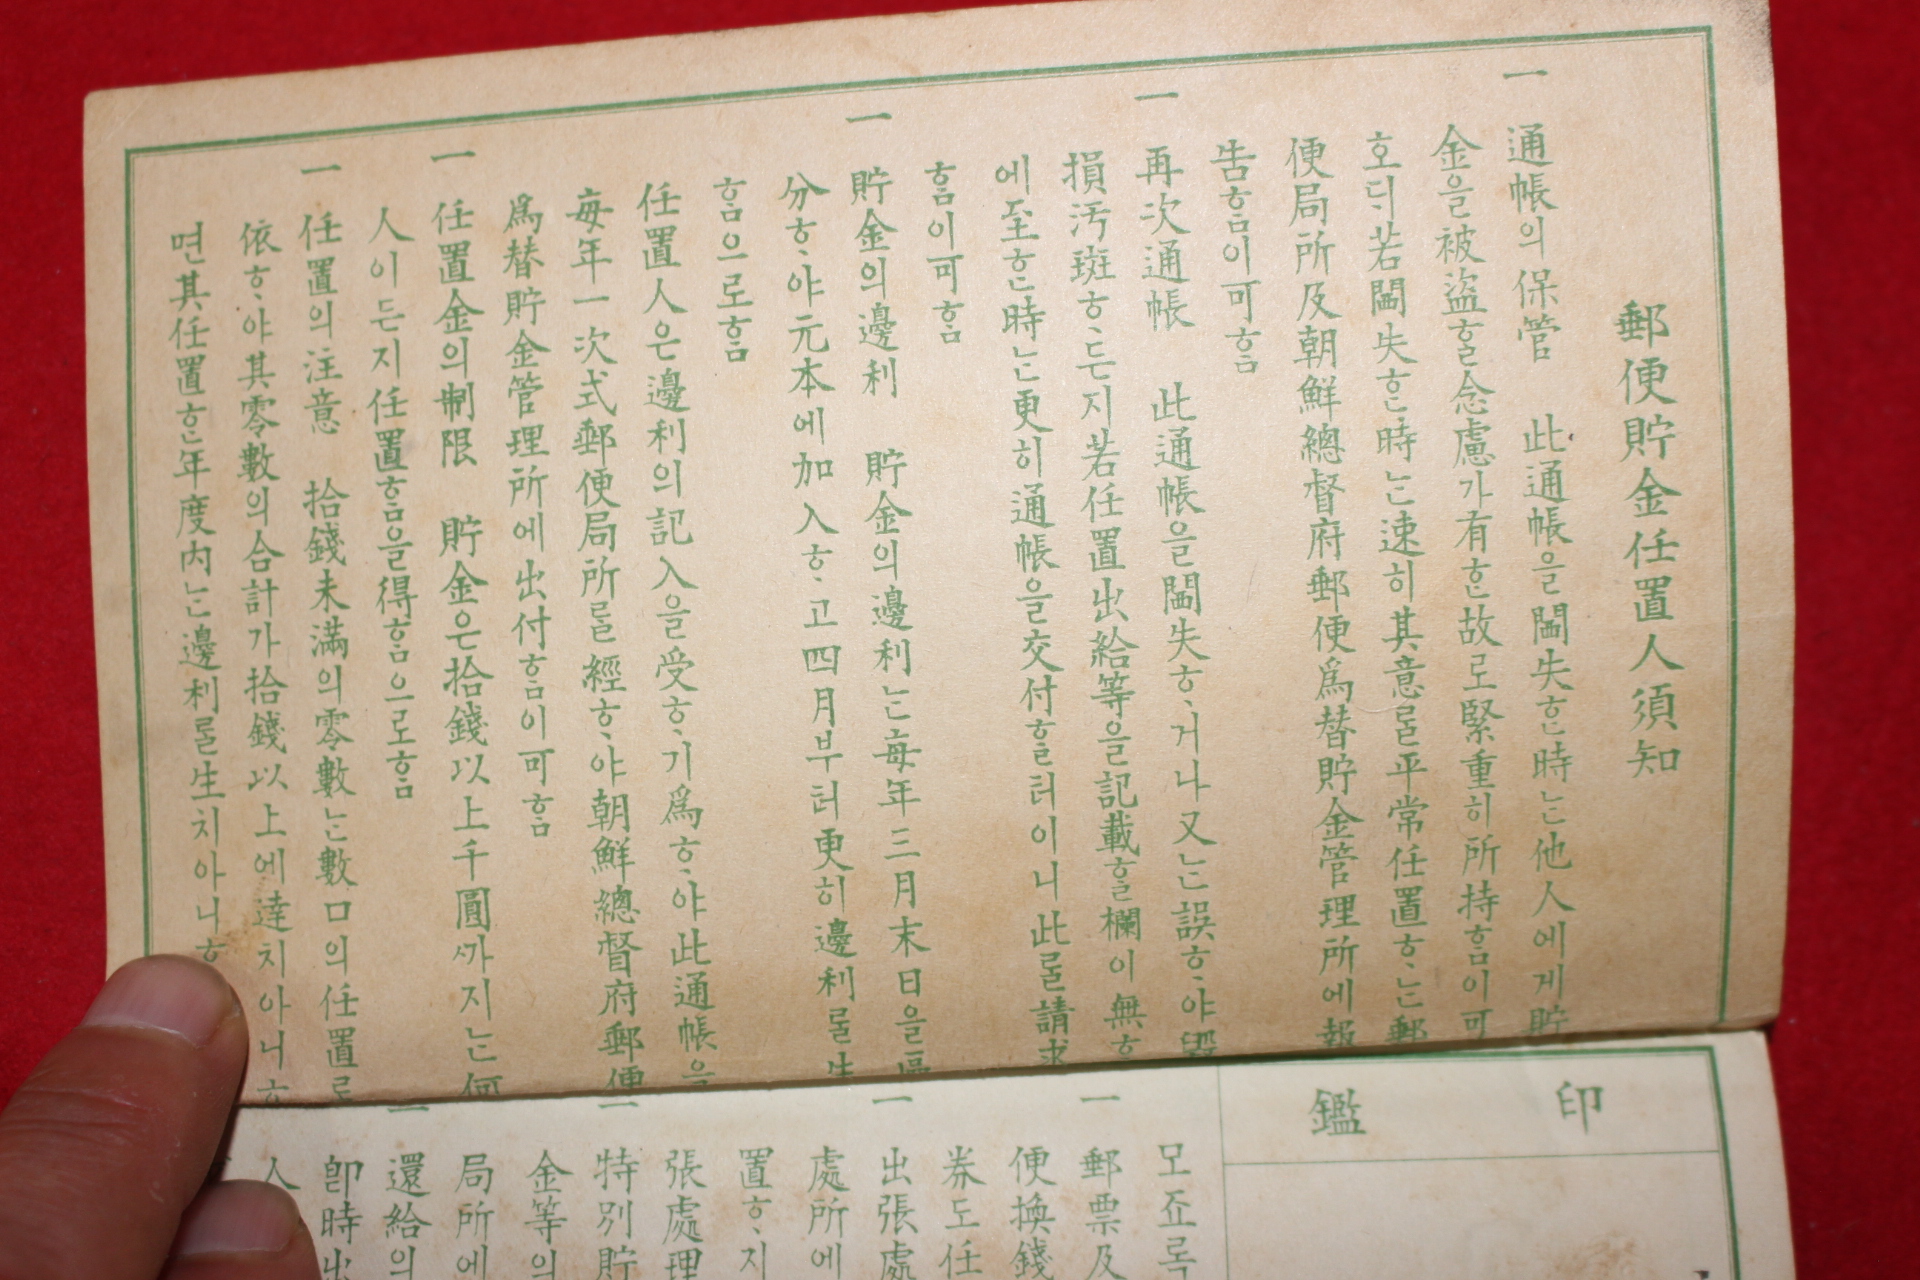 郵便貯金任置人須知
一 通帳의保管 此通帳을闆失ᄒᆞᆫ時ᄂᆞᆫ他人에게貯
金을被盜ᄒᆞᆯ念慮가有ᄒᆞᆫ故로緊重히所持ᄒᆞᆷ이可
호ᄃᆡ若闆失ᄒᆞᆫ時ᄂᆞᆫ速히其意ᄅᆞᆯ平常任置ᄒᆞᄂᆞᆫ郵
便局所及朝鮮總督府郵便爲替貯金管理所에報
告ᄒᆞᆷ이可ᄒᆞᆷ
一 再次通帳 此通帳을闆失ᄒᆞ거나又ᄂᆞᆫ誤ᄒᆞ야毀
損汚斑ᄒᆞ든지若任置出給等을記載ᄒᆞᆯ欄이無ᄒᆞ
에至ᄒᆞᆫ時ᄂᆞᆫ更히通帳을交付ᄒᆞᆯ터이니此ᄅᆞᆯ請求
ᄒᆞᆷ이可ᄒᆞᆷ
一 貯金의邊利 貯金의邊利ᄂᆞᆫ每年三月末日을區
分ᄒᆞ야元本에加入ᄒᆞ고四月부터更히邊利ᄅᆞᆯ生
ᄒᆞᆷ으로ᄒᆞᆷ
任置人은邊利의記入을受ᄒᆞ기爲ᄒᆞ야此通帳을
每年一次式郵便局所ᄅᆞᆯ經ᄒᆞ야朝鮮總督府郵便
爲替貯金管理所에出付ᄒᆞᆷ이可ᄒᆞᆷ
一 任置金의制限 貯金은拾錢以上千圓ᄭᅡ지ᄂᆞᆫ何
人이든지任置ᄒᆞᆷ을得ᄒᆞᆷ으로ᄒᆞᆷ
一 任置의注意 拾錢未滿의零數ᄂᆞᆫ數口의任置로
依ᄒᆞ야其零數의合計가拾錢以上에達치아니ᄒᆞ
면其任置ᄒᆞᆫ年度內ᄂᆞᆫ邊利ᄅᆞᆯ生치아니ᄒᆞ
印鑑
모죠록
一 郵票及
便換錢
券도任
一 出張處
處所에
置ᄒᆞ지
張處理
一 特別貯
金等의
局所에
還給의
一 卽時出
人